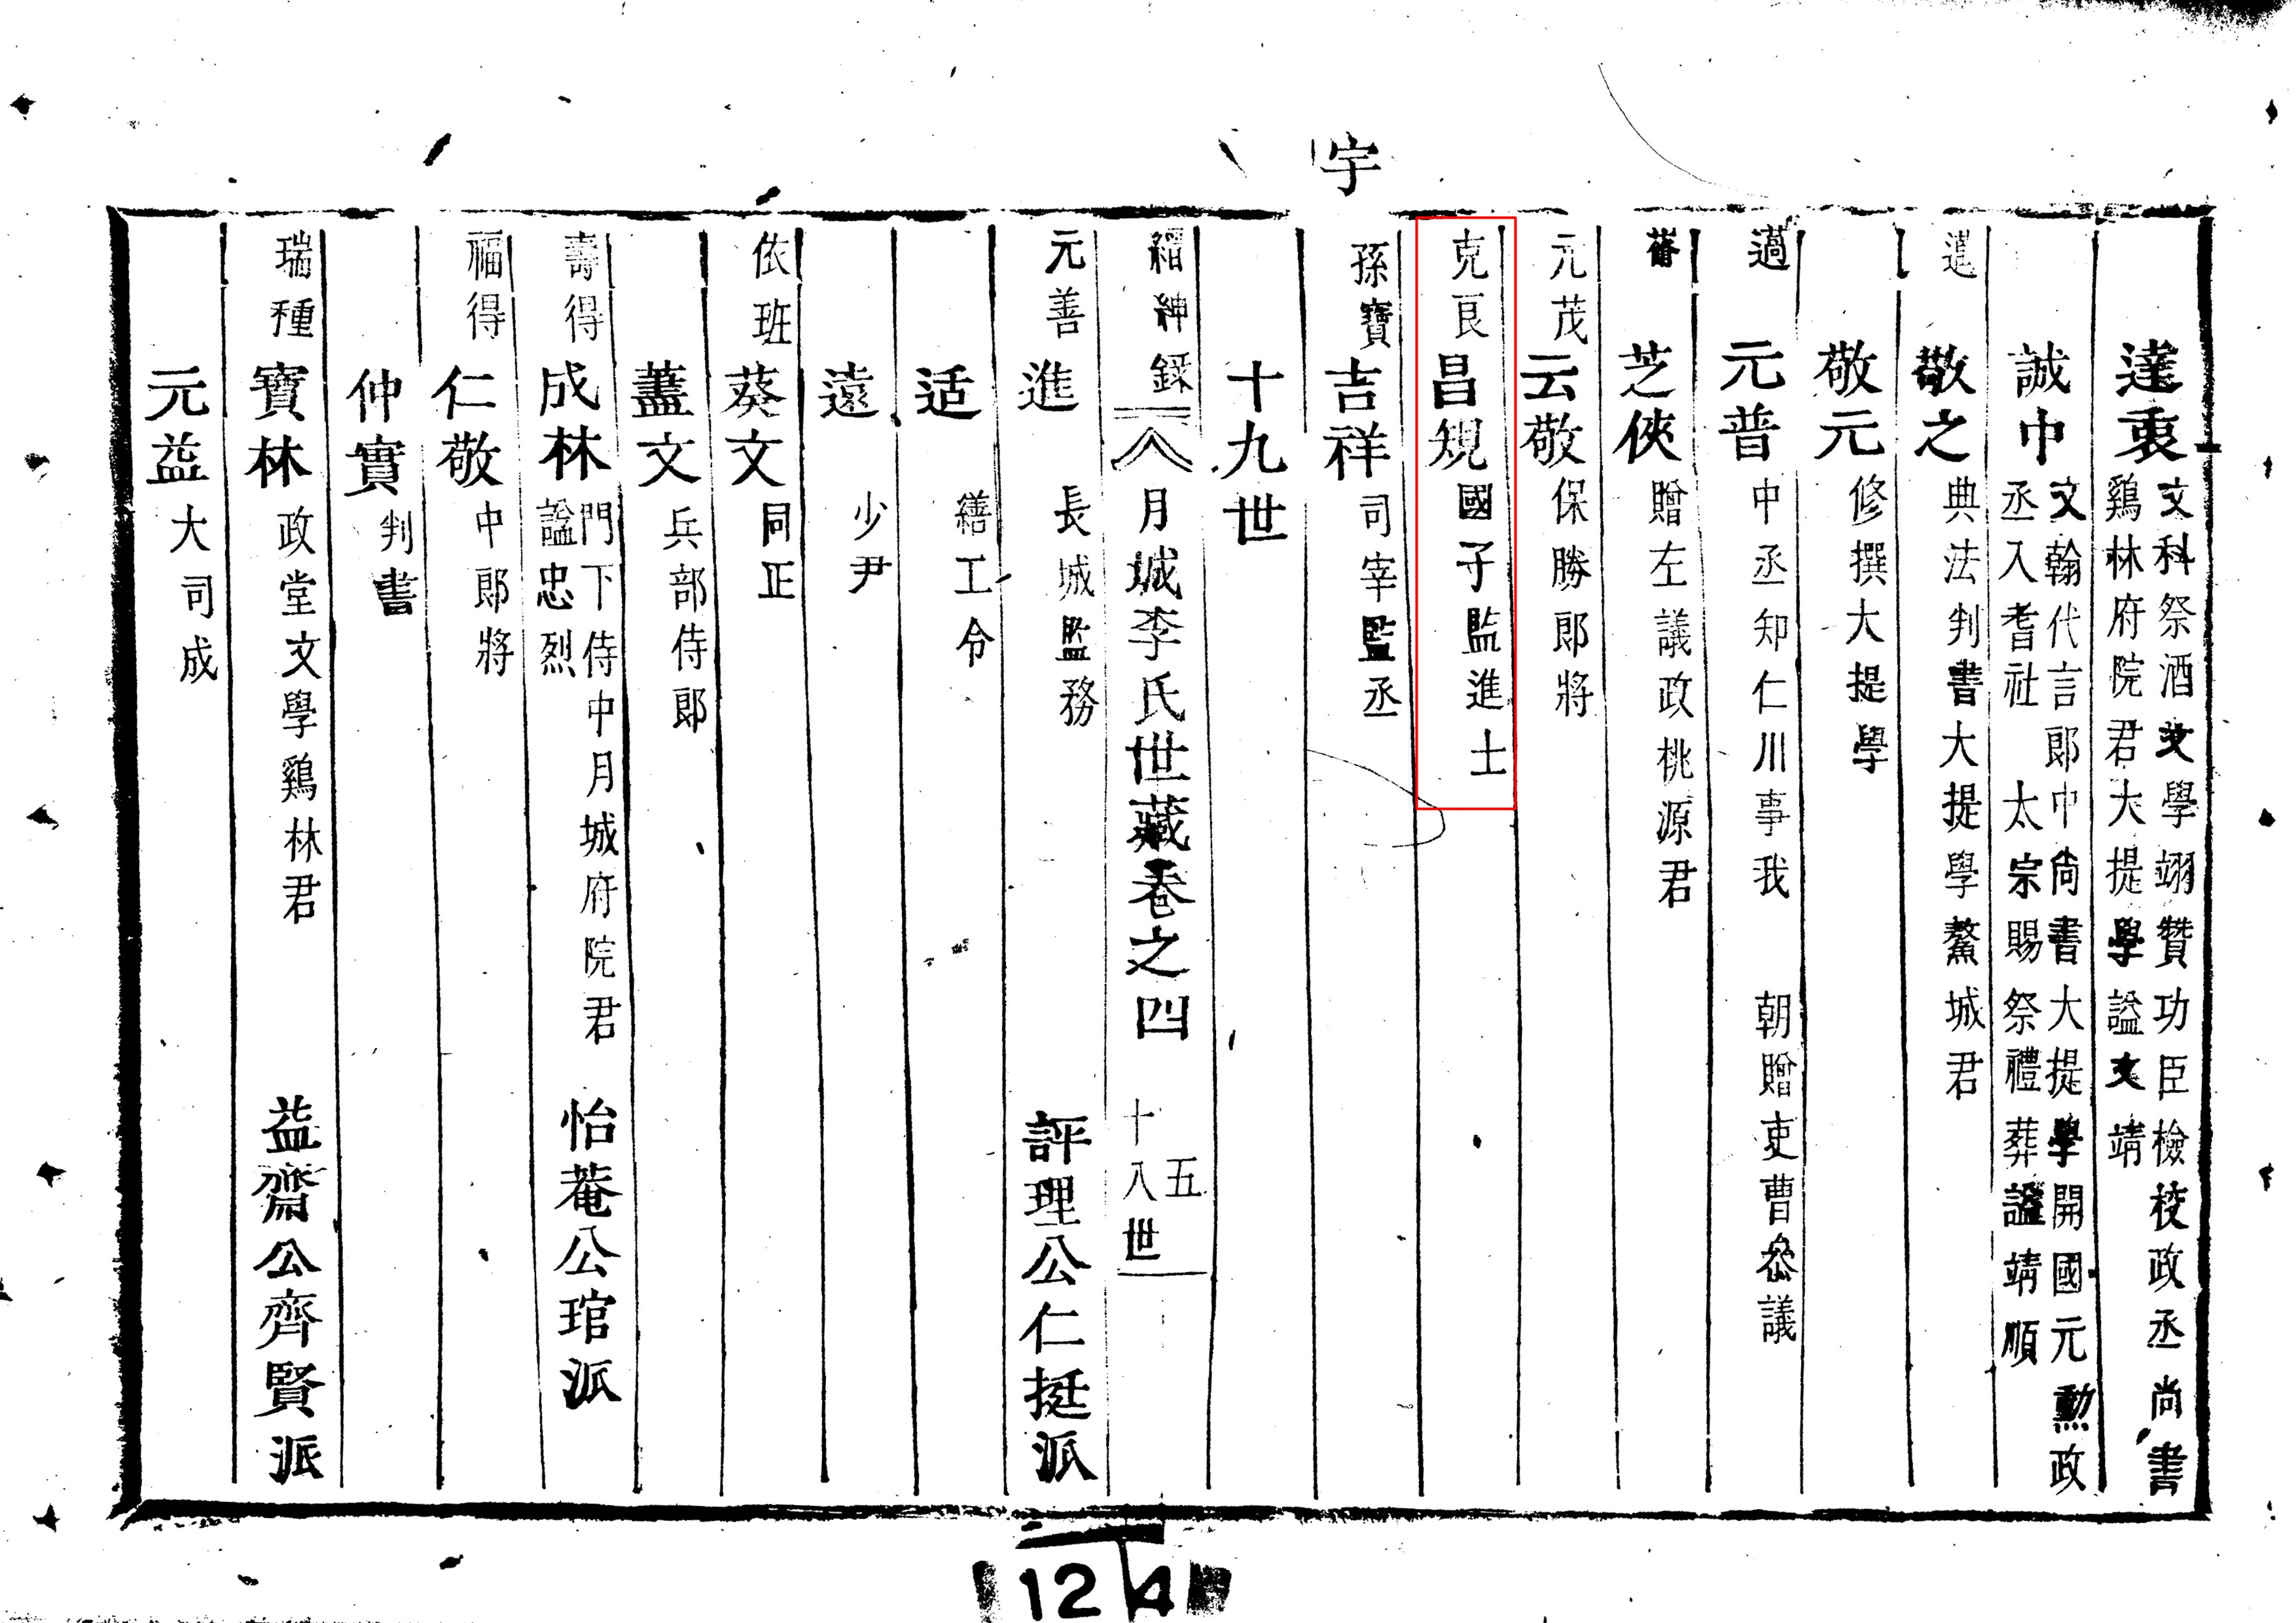 宇
達衷 文科祭酒文學翊贊功臣檢校政丞尚書
鷄林府院君大提學諡文靖
誠中 文翰代言郞中尙書大提學開國元勳政
丞入耆社 太宗賜祭禮葬諡靖順
敬之 典法判書大提學鰲城君
敬元 修撰大提學
過 元普 中丞知仁川事我 朝贈吏曹叅議
蒨 芝俠 贈左議政桃源君
元茂 云敬 保勝郞將
克良 昌規 國子監進士
孫寶 吉祥 司宰監丞
十九世
縉紳錄 月城李氏世藏卷之四 十八世 五
元善 進 長城監務 評理公仁挺派
适 繕工令
遠 少尹
依班 葵文 同正
蓋文 兵部侍郞
壽得 成林 門下侍中月城府院君 怡菴公琯派
諡忠烈
福得 仁敬 中郞將
仲實 判書
瑞種 寶林 政堂文學鷄林君 益齋公齊賢派
元益 大司成
124